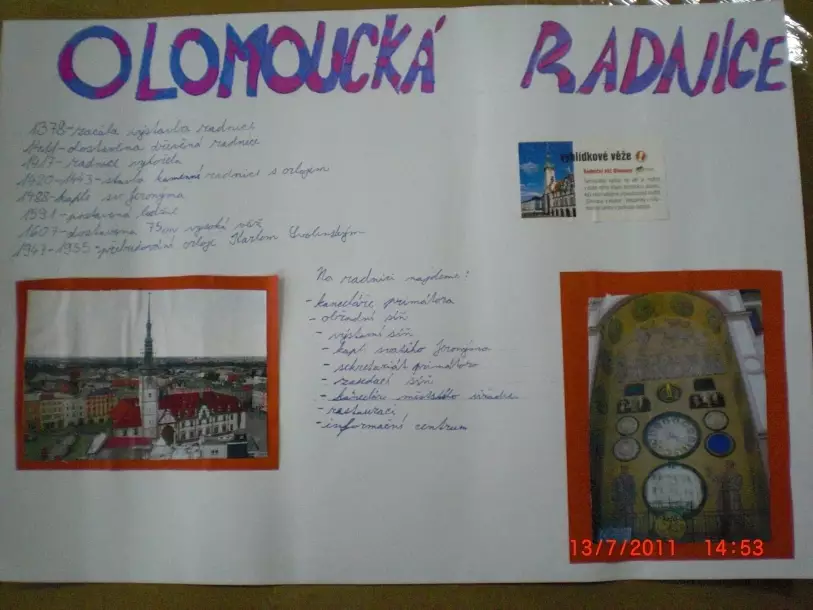 OLOMOUCKÁ RADNICE
1378-začala výstavba radnice
dostavěna dřevěná radnice
1417-radnice vyhořela
1420-1443-stavba kamenné radnice s orlojem
1488-kaple sv. Jeronýma
1591-postavena lodžie
1607-dostavena 75m vysoká věž
1947-1955-přebudování orloje Karlem Svolinským
vyhlídkové věže
Radniční věž Olomouc
Na radnici najdeme:
-kanceláře primátora
-obřadní síň
-výstavní síň
-kapli svatého Jeronýma
-sekretariát primátora
-zasedací síň
-kanceláře městského úřadu
-restauraci
-informační centrum
13/7/2011 14:53